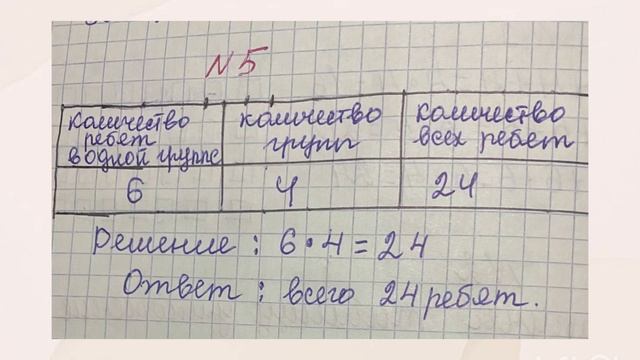 N 5
Количество ребят в одной группе
количество групп
количество всех ребят
6
4
24
Решение : 6 • 4 = 24
Ответ : всего 24 ребят.